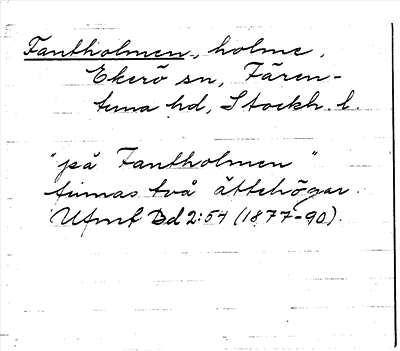 Fantholmen, holme,
Ekerö sn, Fären-
tuna hd, Stockh. l.
"på Fantholmen"
finnas två ättehögar.
Ufmf Bd 2:54 (1877-90).